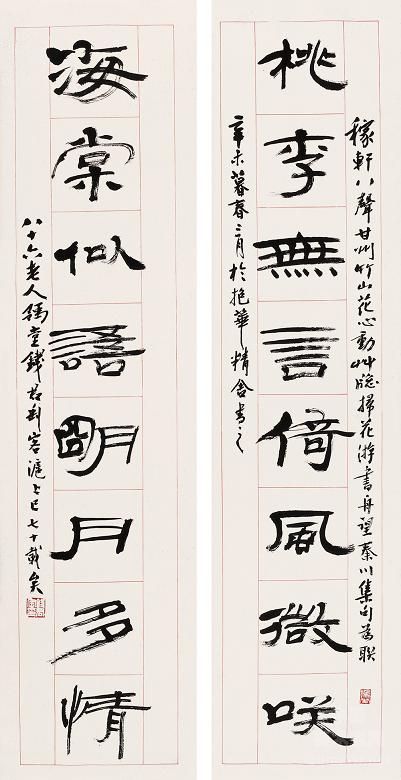 稼軒八聲甘州竹山花心動艸牕掃花游書舟望秦川集句為聯
桃李無言倚風微咲
辛未暮春三月於抱華精舍書之
海棠似語朙月多情
八十六老人豫堂錢君匋客滬上已七十載矣